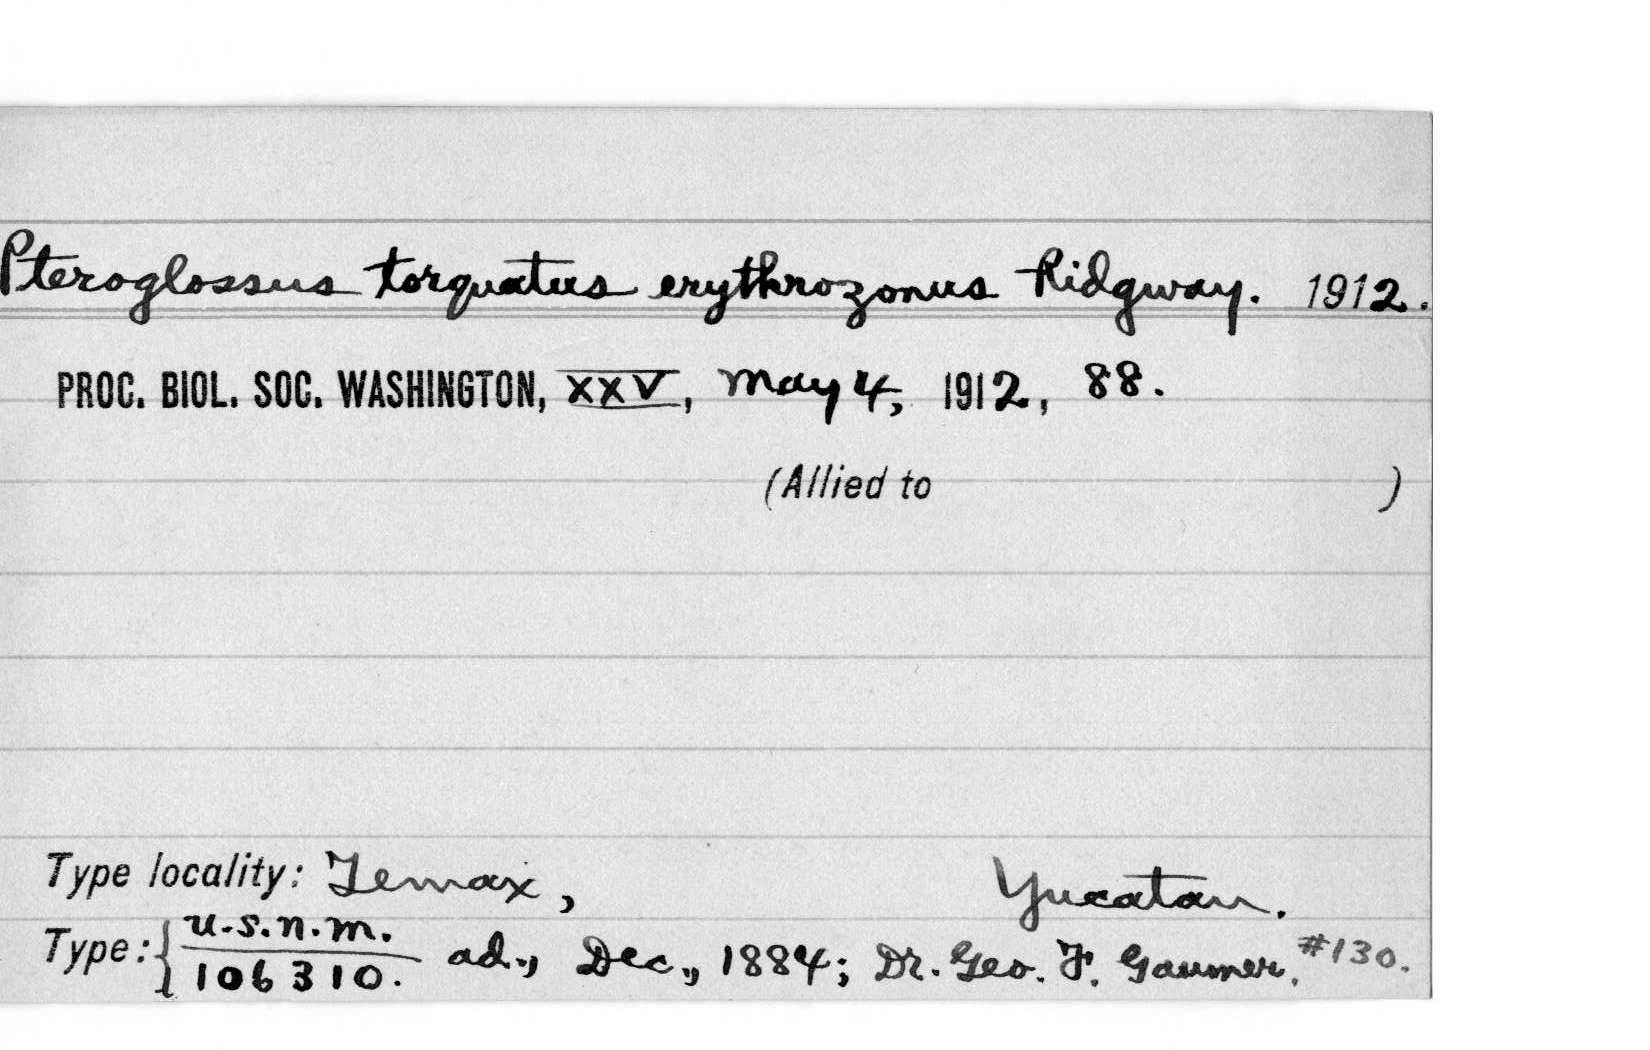 Pteroglossus torquatus erythrozonus Ridgway. 1912.
PROC. BIOL. SOC. WASHINGTON, XXV, May 4, 1912, 88.
(Allied to )
Type locality: Temax, Yucatan.
Type: { U.S.N.M. 106310. ad., Dec., 1884; Dr. Geo. F. Gaumer. #130.